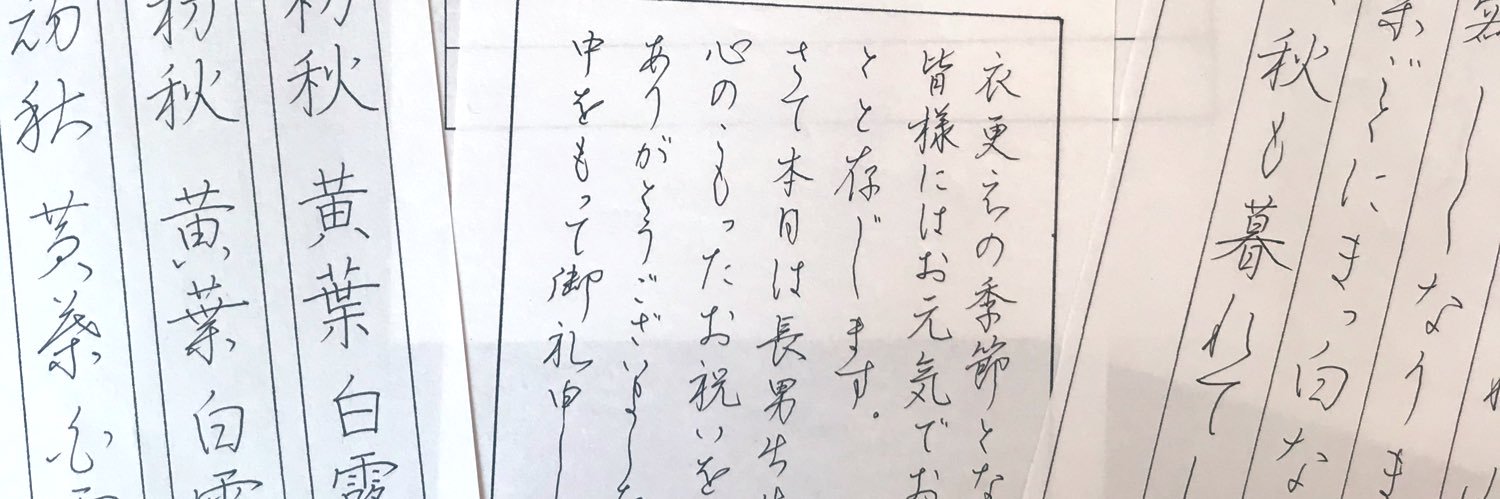 暮れて
秋も暮れて
ごとにまっ白な
しなりま
衣更えの季節とな
皆様にはお元気でお
とと存じます。
さて本日は長男出生
心のこもったお祝いを
ありがとうございました
中をもって御礼申し
初秋 黄葉 白露
初秋 黄葉 白露
初秋 黄葉 白露